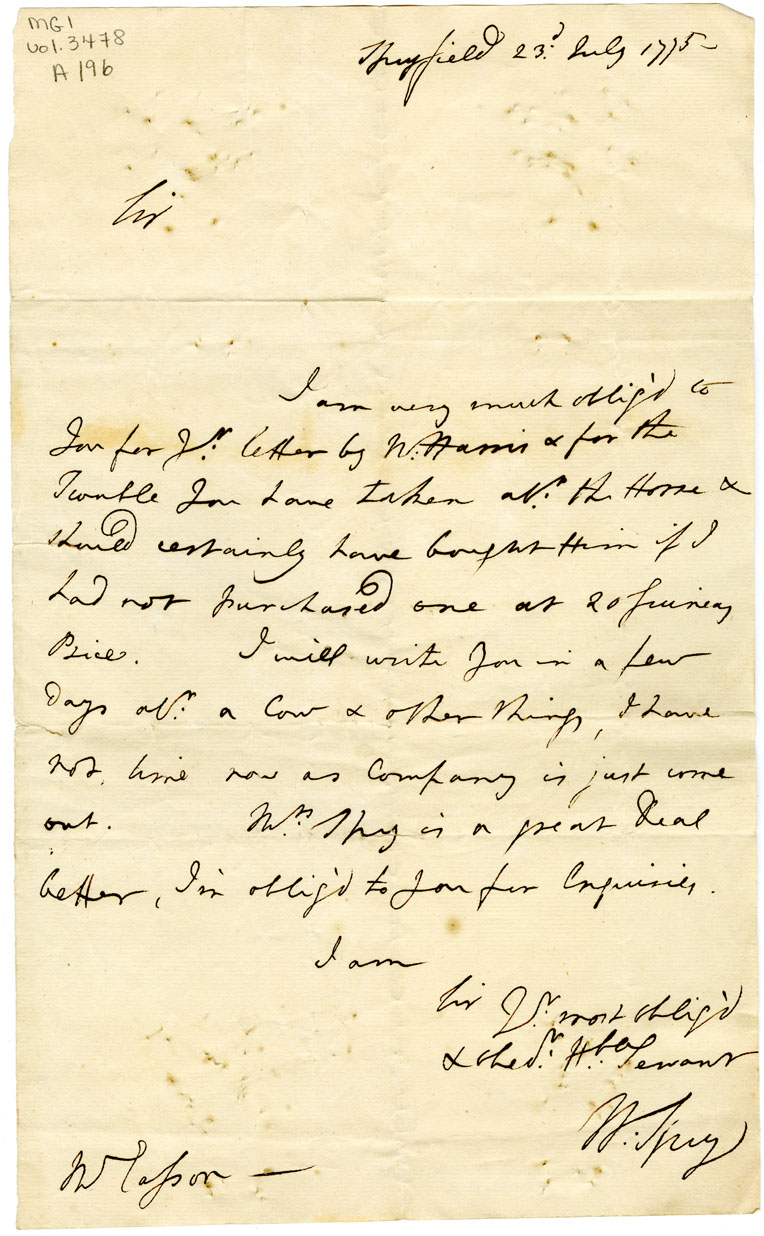 MG1
vol. 3478
A 196
Spryfield 23d. July 1775
Sir
I am very much oblig'd to
You for Yr. letter by W. Harris & for the
Trouble You have taken abt. the Horse &
should certainly have bought Him if I
had not purchased one at 20 Guineas
Price. I will write You in a few
Days abt. a Cow & other things, I have
not time now as Company is just come
out. Mrs. Spry is a great Deal
better, I'm oblig'd to You for Enquiries.
I am
Sir Yr. most oblig'd
& Obedt. Hble Servant
W: Spry
Mr